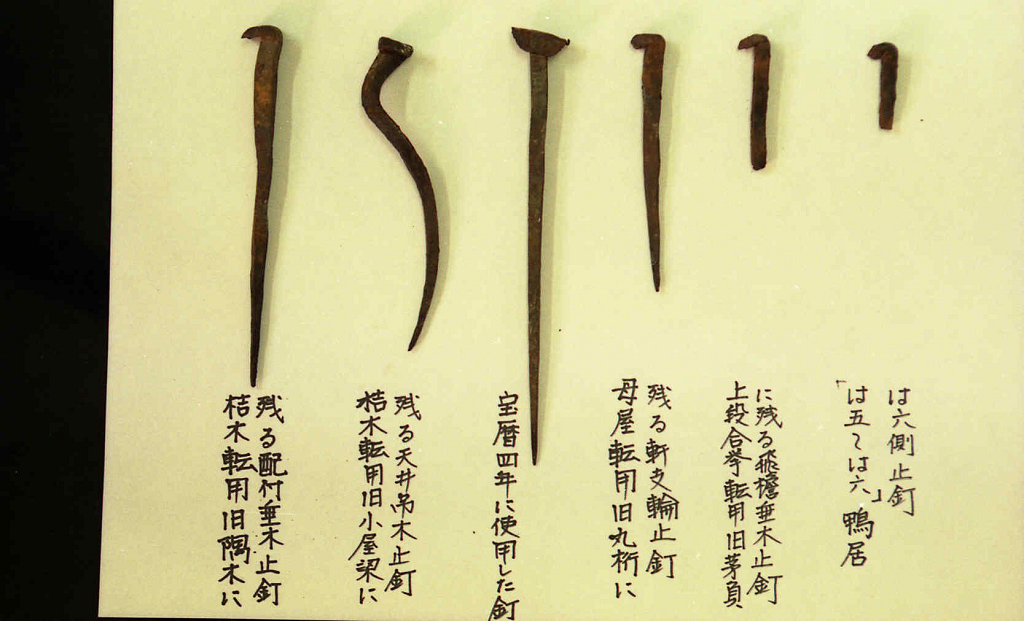 「は五〜は六」鴨居
は六側止釘
上段合掌転用旧茅負
に残る飛檐垂木止釘
母屋転用旧丸桁に
残る軒支輪止釘
宝暦四年に使用した釘
桔木転用旧小屋梁に
残る天井吊木止釘
桔木転用旧隅木に
残る配付垂木止釘